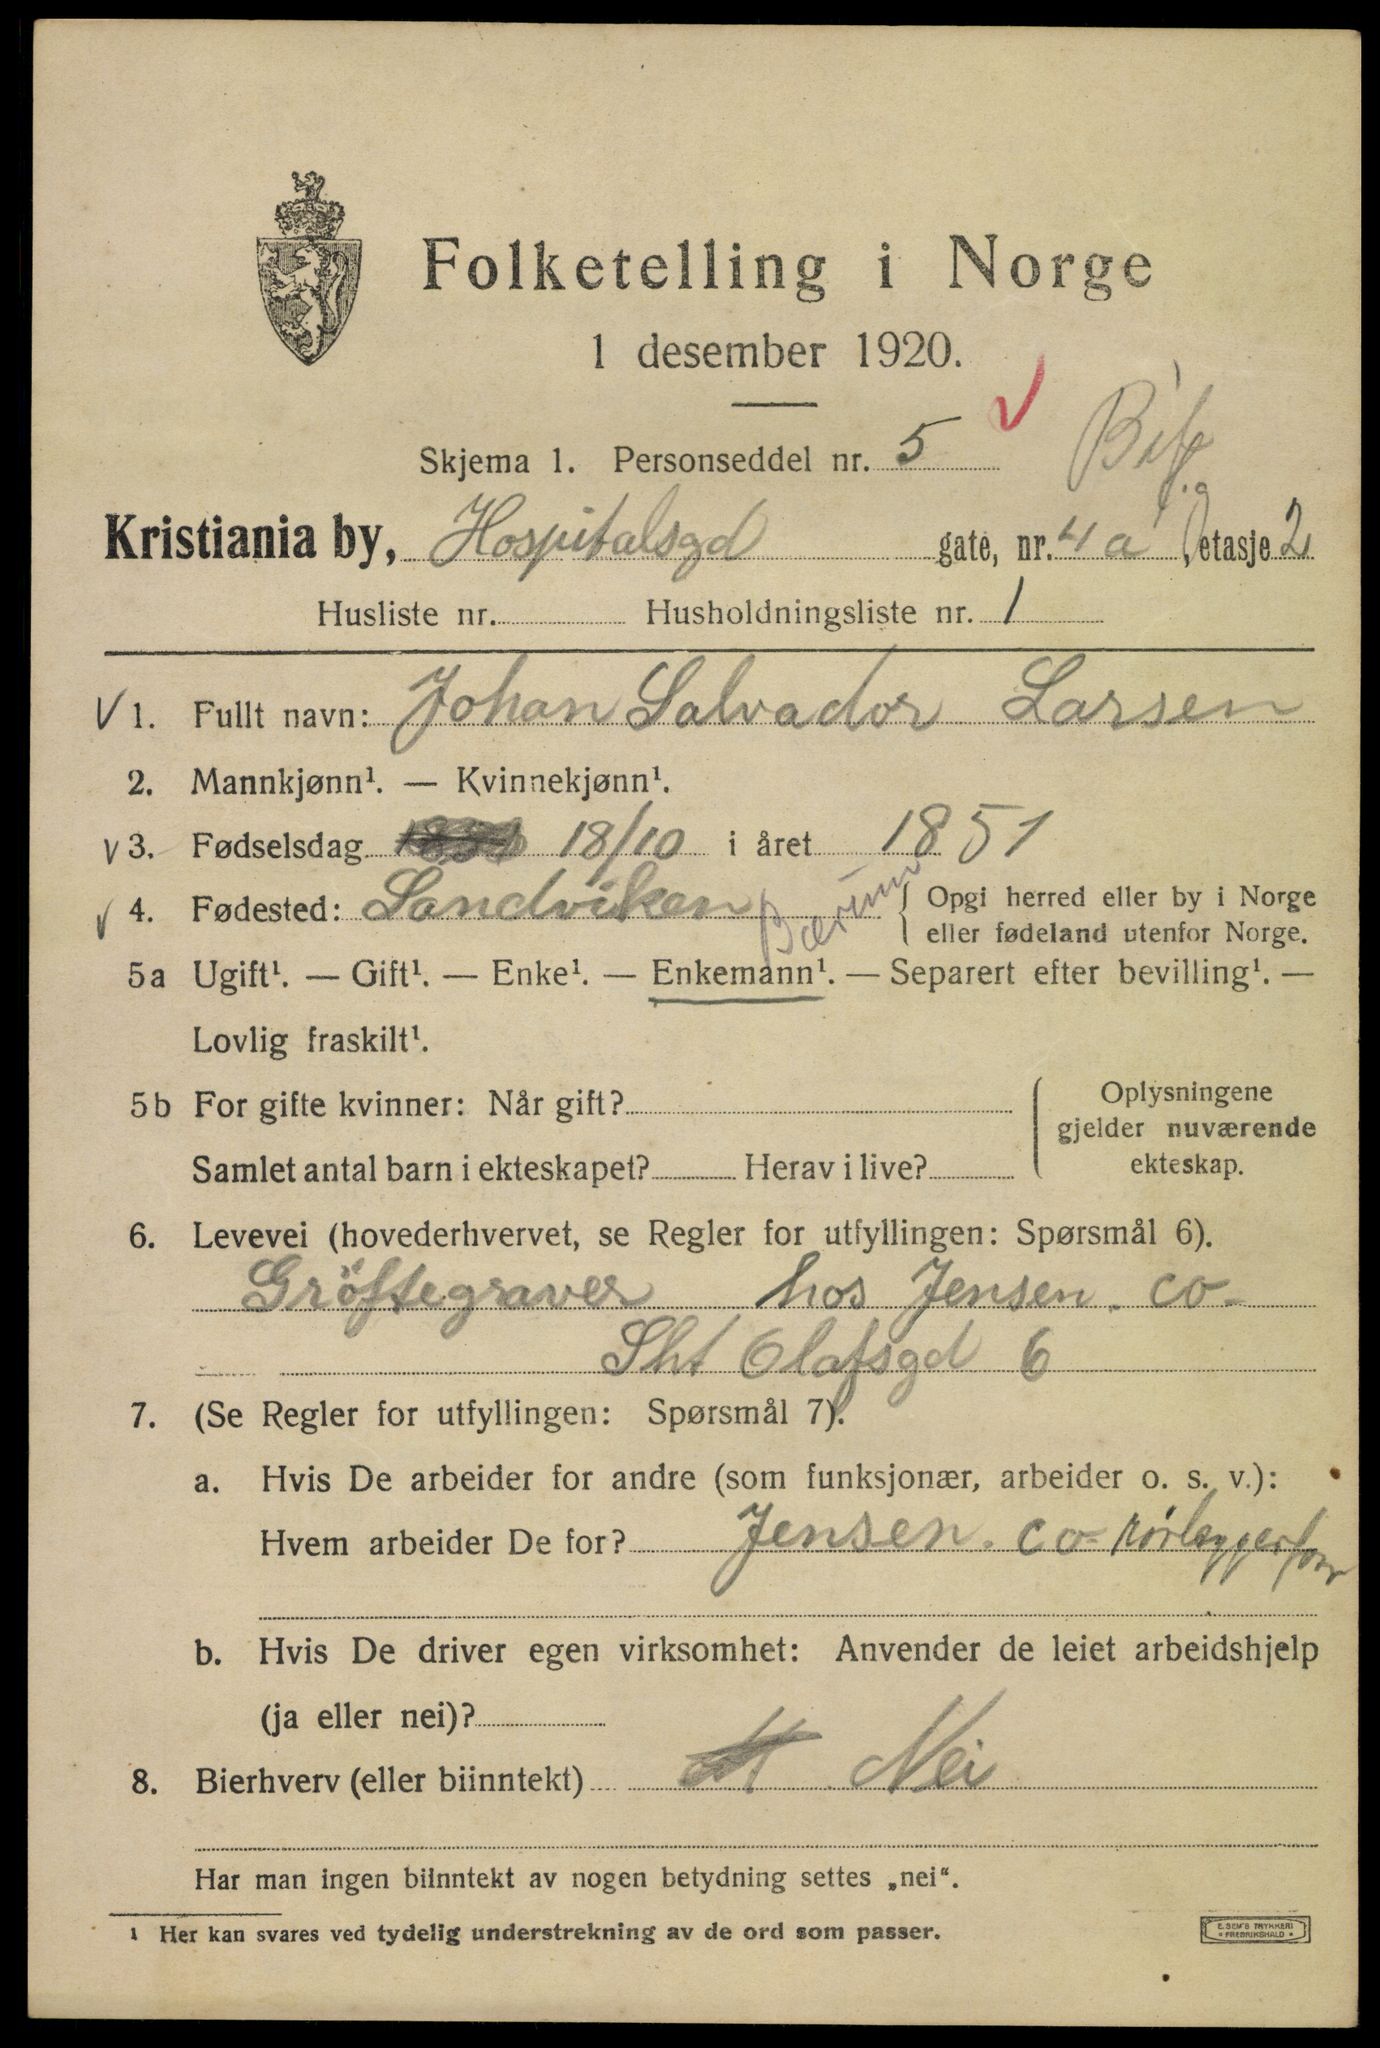 Folketelling i Norge
1 desember 1920.
Skjema 1. Personseddel nr. 5
Kristiania by, Hospitalsgd gate, nr. 4 a, etasje 2
Husliste nr. Husholdningsliste nr. 1
1. Fullt navn: Johan Salvador Larsen
2. Mannkjønn¹. — Kvinnekjønn¹.
3. Fødselsdag 18/10 i året 1851
4. Fødested: Sandviken Bærum Opgi herred eller by i Norge
eller fødeland utenfor Norge.
5a Ugift¹. — Gift¹. — Enke¹. — Enkemann¹. — Separert efter bevilling¹. —
Lovlig fraskilt¹.
5b For gifte kvinner: Når gift?
Samlet antal barn i ekteskapet? Herav i live?
Oplysningene
gjelder nuværende
ekteskap.
6. Levevei (hovederhvervet, se Regler for utfyllingen: Spørsmål 6).
Gröftegraver hos Jensen. co-
Sht Olafsgd 6
7. (Se Regler for utfyllingen: Spørsmål 7).
a. Hvis De arbeider for andre (som funksjonær, arbeider o. s. v.):
Hvem arbeider De for? Jensen. co- rørleggerforr
b. Hvis De driver egen virksomhet: Anvender de leiet arbeidshjelp
(ja eller nei)?
8. Bierhverv (eller biinntekt) Nei
Har man ingen biinntekt av nogen betydning settes „nei“.
¹ Her kan svares ved tydelig understrekning av de ord som passer.
E. SEM'S TRYKKERI
* FREDRIKSHALD *